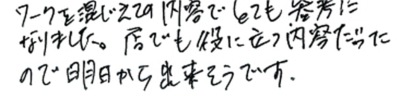 ワークを混じえての内容でとても参考に
なりました。店でも役に立つ内容だった
ので明日から出来そうです.